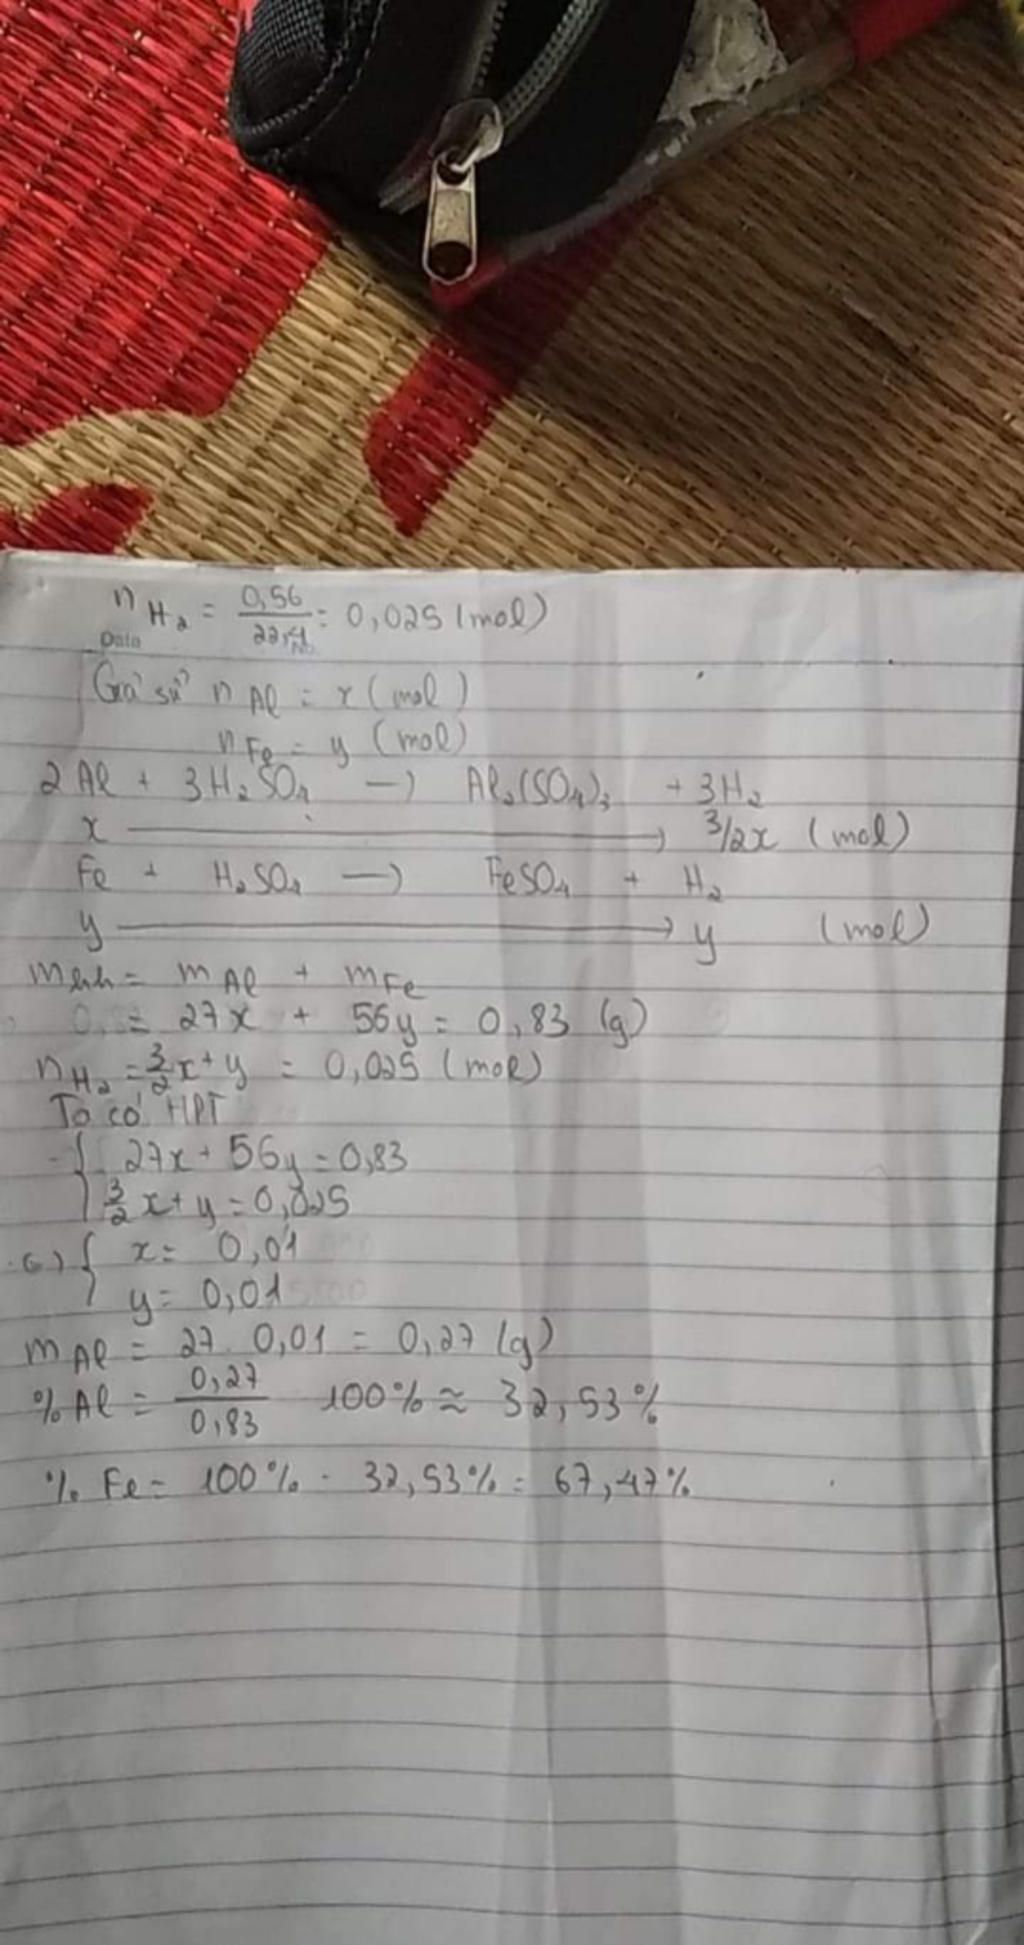 n H2 = 0,56 / 22,4 = 0,025 (mol)
Date No.
Giả sử n Al = x (mol)
n Fe = y (mol)
2Al + 3H2SO4 → Al2(SO4)3 + 3H2
x → 3/2x (mol)
Fe + H2SO4 → FeSO4 + H2
y → y (mol)
m hh = m Al + m Fe
= 27x + 56y = 0,83 (g)
n H2 = 3/2 x + y = 0,025 (mol)
Ta có HPT
{ 27x + 56y = 0,83
3/2 x + y = 0,025
(=) { x = 0,01
y = 0,01
m Al = 27 . 0,01 = 0,27 (g)
% Al = 0,27 / 0,83 100% ≈ 32,53%
% Fe = 100% - 32,53% = 67,47%